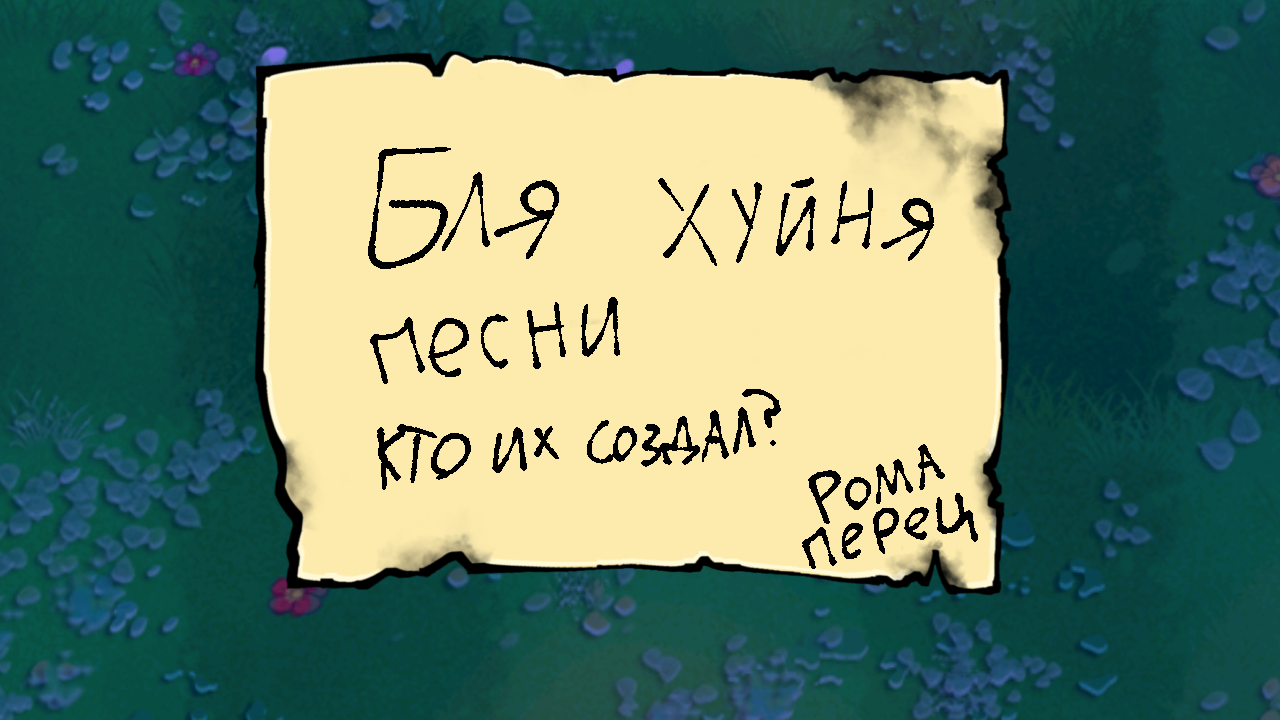 Бля хуйня
песни
кто их создал?
Рома
перец